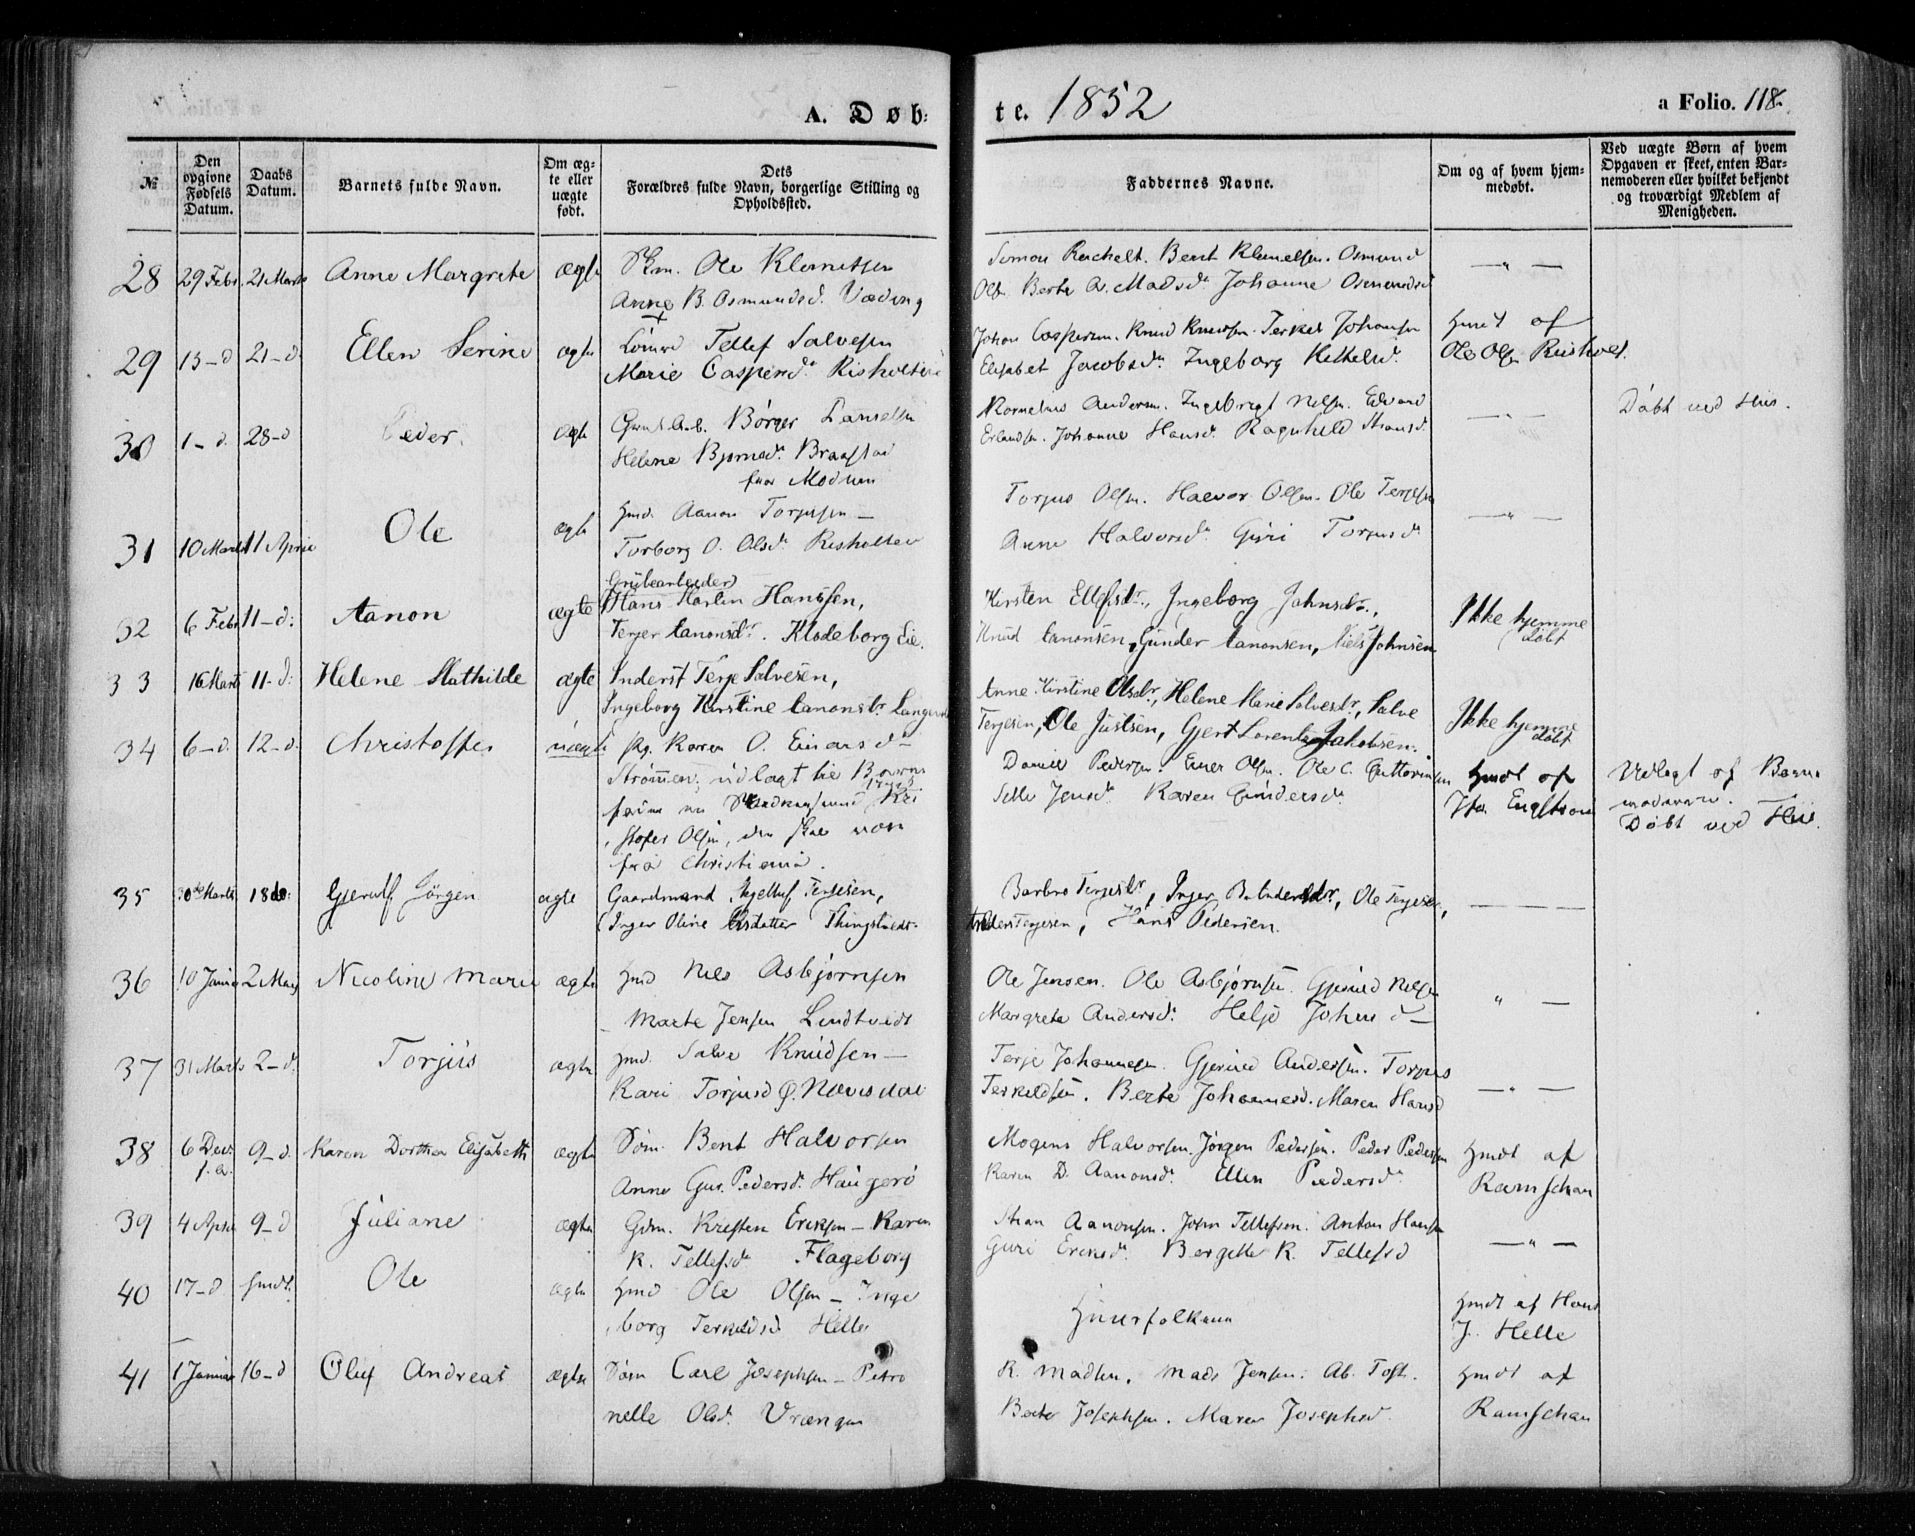 A. Døb-
te. 1852
a Folio. 118.
№
Den opgivne Fødsels Datum.
Daabs Datum.
Barnets fulde Navn.
Om ægte eller uægte født.
Dets Forældres fulde Navn, borgerlige Stilling og Opholdssted.
Faddernes Navne.
Om og af hvem hjemmedøbt.
Ved uægte Børn af hvem Opgaven er skeet, enten Barnemoderen eller hvilket bekjendt og troværdigt Medlem af Menigheden.
28 29 Febr. 21 Marts Anne Margrete ægte Ole Klemetsen
Anne B. Osmundsd.
Bent Klemetsen. Osmund
Olsn. Berte A. Madsd. Johanne Osmundsd
— " —
29 13-d 21-d. Ellen Serine ægte Tellef Salvesen
Marie Caspersd. Risholtei
Johan Caspersen. Knud Knudsen. Terkel Johansen
Elisabet Jacobsd. Ingeborg Kettelsd.
Hmdt af
Ole Olsn Risholt.
30 1-d. 28-d Peder. ægte Børger
Helene Bjørnsd. Braastad
fra Modum
Kornelius Andersn. Ingebregt Nelsn. Edvard
Erlandsn. Johanne Hansd. Ragnhild
— " —
Døbt ved His.
31 10 Marts 11 April Ole ægte Hmd. Aanon Torjusen —
Torborg O. Olsd. Risholtei
Torjus Olsn. Halvor Olsen. Ole Terjesn
Anne Halvorsd. Giri Torjusd
— " —
32 6 Febr 11-d: Aanon ægte Grübearbeider
Hans Martin Hanssen,
Terjer Aanonsdr. Klodeborg Eie.
Kirsten Ellefsdr., Ingeborg Johnsdr.,
Knud Aanonsen, Gunder Aanonsen, Niels Johnsen
Ikke hjemme
døbt
33 16 Marts 11-d: Helene Mathilde ægte Inderst Terje Salvesen,
Ingeborg Kirstine Aanonsdr.
Anne Kirstine Olsdr., Helene Marie Salvesdr., Salve
Terjesen, Ole Justsen, Gjert Lorentz Jakobsen.
Ikke hjemme
døbt
34 6-d. 12-d. Christoffer uægte Pg. Karen O. Einarsd-
Strømmen; udlagt til Barns
fader
stofer Olsn, der skal være
fra Christiania.
Daniel Pedersn. Einer Olsn. Ole C. Guttormsen
Jensd. Karen Gundersd.
Hmdt af
Udlagt af Barne
moderen.
Døbt ved His.
35 30 Marts 18 do: Gjerulf Jørgen ægte Gaardmand Terjesen,
Inger Oline Thingstvedt.
Barbro Terjesdr., Inger Ole Terjesen,
Anders Terjesen, Hans Pedersen.
— — —
36 10 Januar 2 Maj Nicoline Marie ægte Hmd Nels Asbjørnsen
— Marte Jensen Lindtvedt
Ole Jensen. Ole Asbjørnsn. Gjerued Nelsen
Margrete Andersd. Helje Johnsd —
" —
37 31 Marts 2-d. Torjus ægte Hmd. Salve Knudsen —
Kari Torjusd Ø. Navisdal
Terje Johannesn. Gjerued Andersen. Torjus
Terkeldsen. Berte Johannesd. Maren Hansd
— " —
38 6 Decr. f. A. 9-d. Karen Dorthea Elisabeth ægte Søm. Bent Halvorsen
Anne Gur. Pedersd. Haugerø
Mogens Halvorsen. Jørgen Pedersen. Peder Pedersen
Karen D. Aanonsd. Ellen Pedersd.
Hmdt af
Ramschau
39 4 Apri 9-d Juliane ægte Gdm. Kresten Eriksen — Karen
K. Tellefsd. Flageborg
Aanonsen. John Tellefsen. Anton Hansen
Guri Eriksd. Bergitte K. Tellefsd
— " —
40 17-d Hmdt. Ole ægte Hmd Ole Olsen — Inge
borg Terkeldsd. Helle
Huusfolkene
Hmdt af Hans
J. Helle
41 1 Januar 16-d Oluf Andreas ægte Søm Carl Josephsen — Petro
nelle Olsd. Vrængen
K. Madsen. Mads Jensen. Ab. Toft.
Berte Josephsen. Maren Josephsd.
Hmdt af
Ramschau